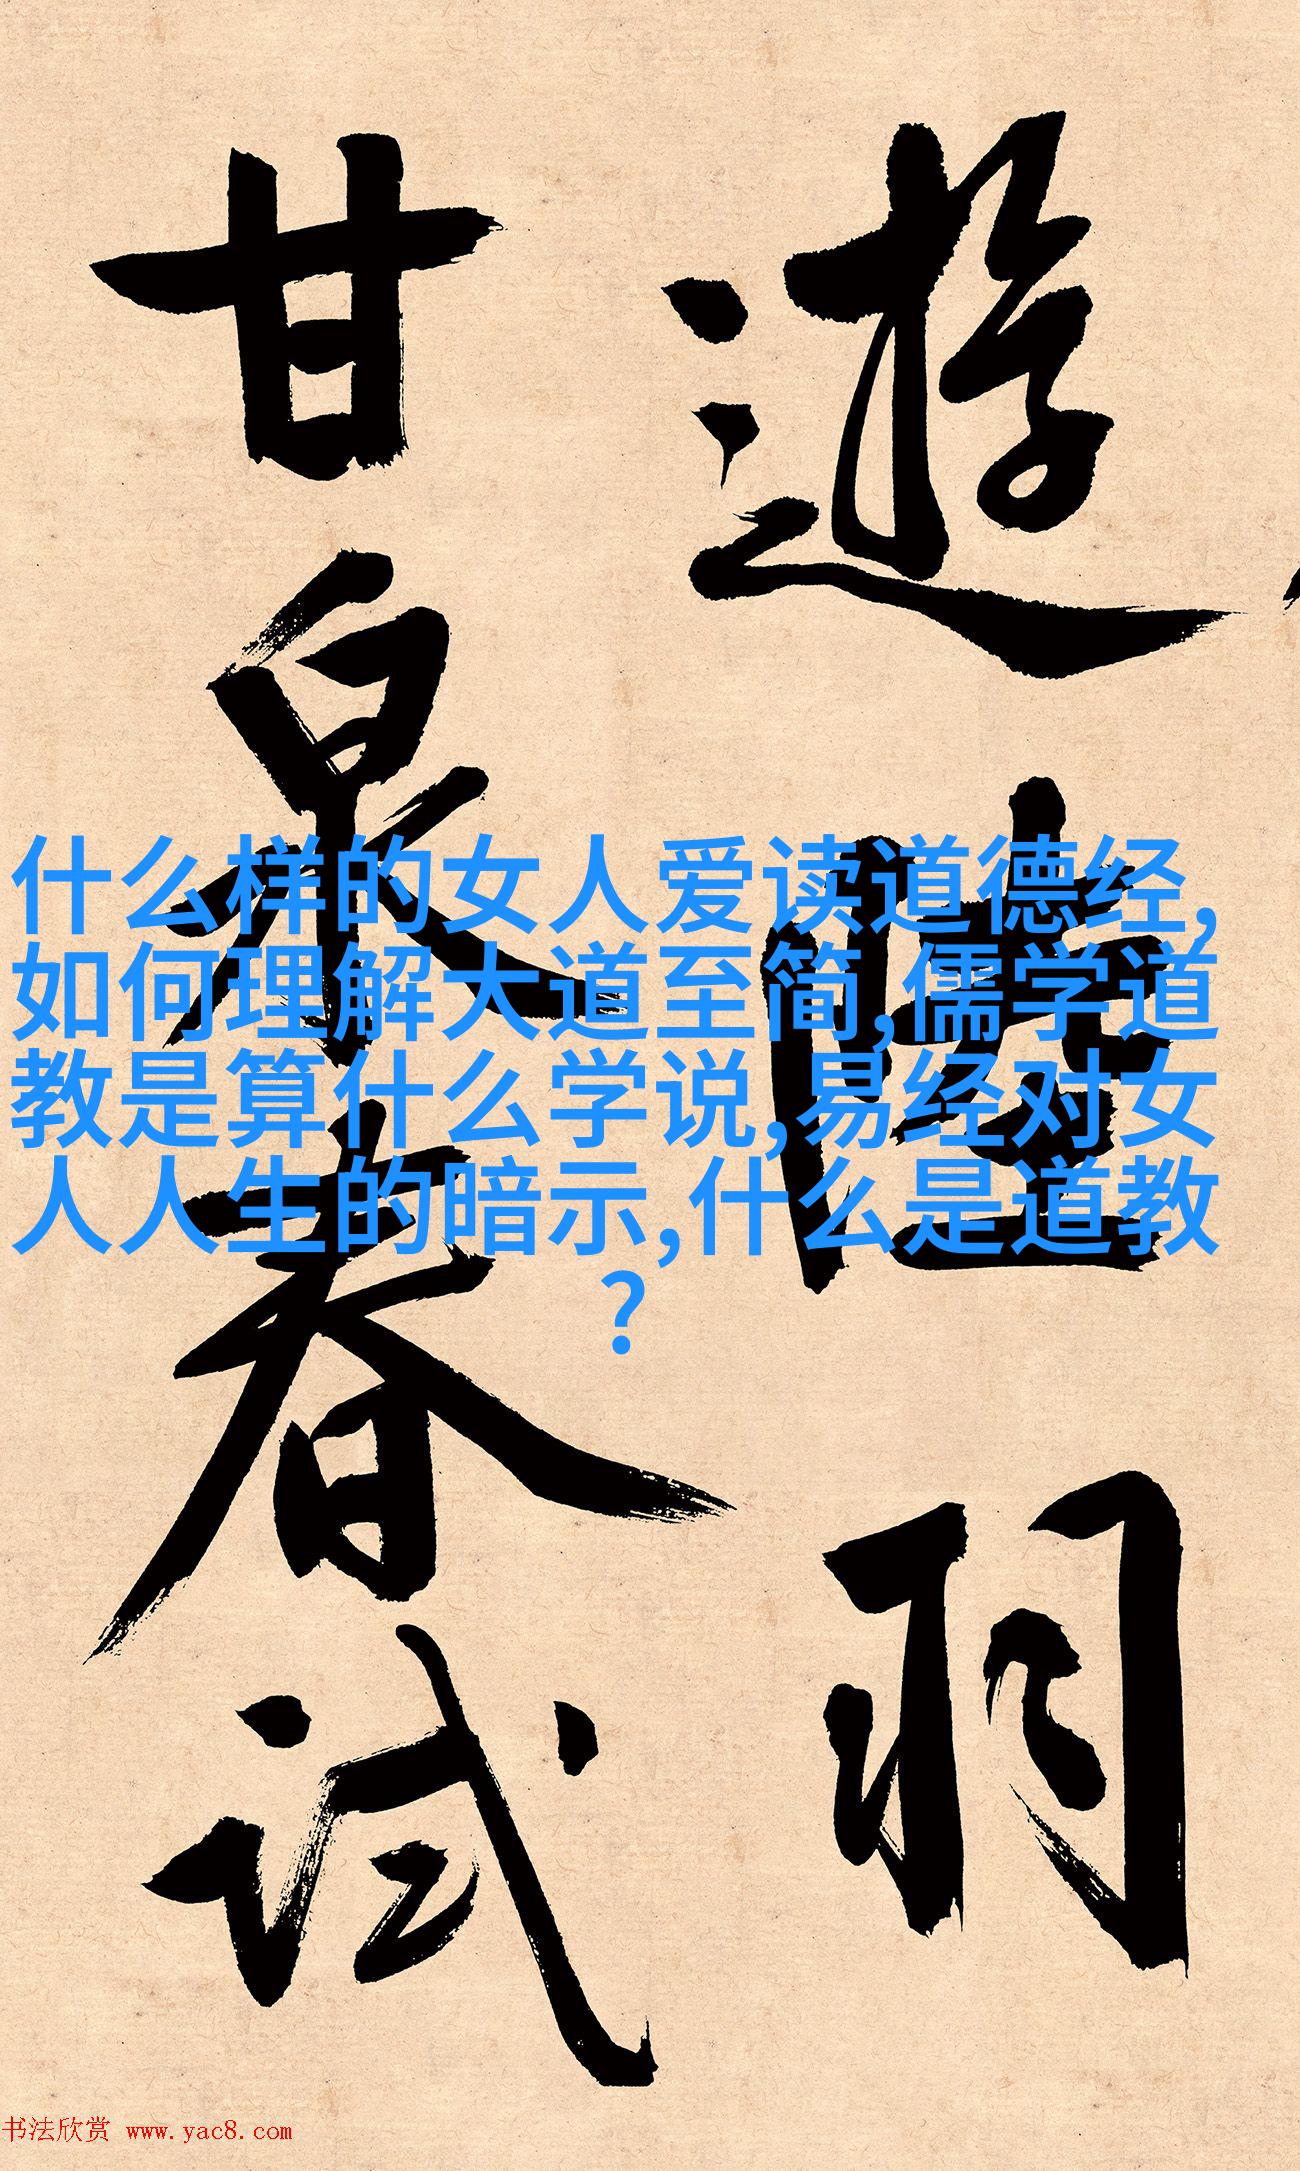 遊陸羽
甘泉春试
什么样的女人爱读道德经,
如何理解大道至简,儒学道
教是算什么学说,易经对女
人人生的暗示,什么是道教
?
书法欣赏 www.yac8.com